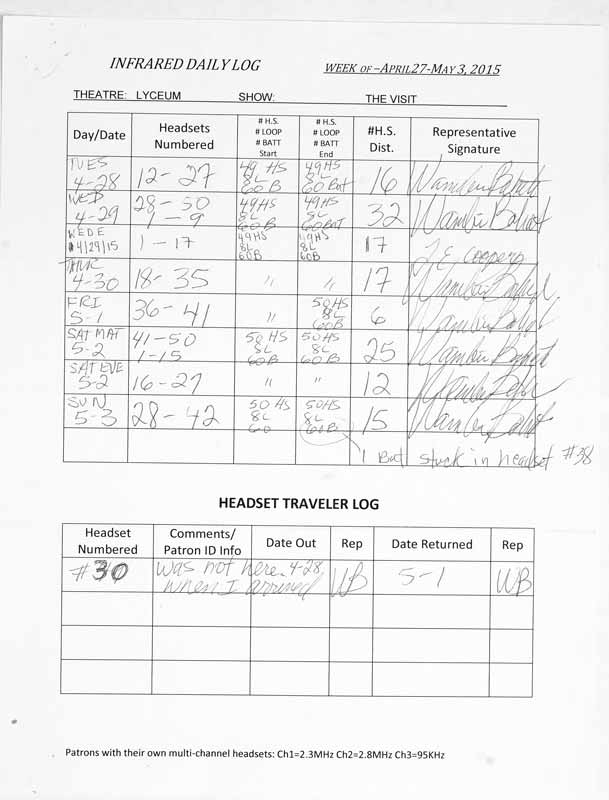 INFRARED DAILY LOG WEEK OF –APRIL27-MAY 3, 2015
THEATRE: LYCEUM SHOW: THE VISIT
Day/Date Headsets Numbered # H.S. # LOOP # BATT Start # H.S. # LOOP # BATT End #H.S. Dist. Representative Signature
TUES 4-28 12-27 49 HS 8L 60 B 49HS 8L 60 Bat 16
WED 4-29 28-50 1-9 49HS 8L 60B 49HS 8L 60 BAT 32
WEDE 4/29/15 1-17 49HS 8L 60B 49HS 8L 60B 17 J E Coopers
THUR 4-30 18-35 " " 17
FRI 5-1 36-41 " 50HS 8L 60B 6
SAT MAT 5-2 41-50 1-15 50 HS 8L 60B 50HS 8L 60B 25
SAT EVE 5-2 16-27 " " 12
SUN 5-3 28-42 50 HS 8L 60 50HS 8L 60B 15
1 Bat stuck in headset #38
HEADSET TRAVELER LOG
Headset Numbered Comments/ Patron ID Info Date Out Rep Date Returned Rep
#30 was not here 4-28 when I arrived WB 5-1 WB
Patrons with their own multi-channel headsets: Ch1=2.3MHz Ch2=2.8MHz Ch3=95KHz